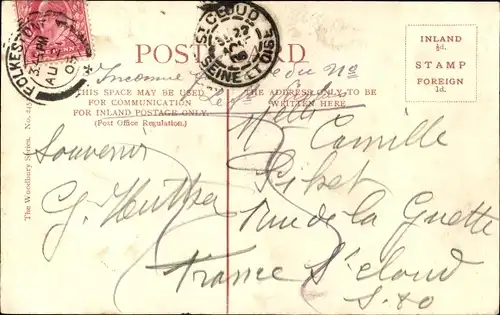 POST CARD
FOLKESTONE
AU
05
ST CLOUD
SEINE ET OISE
Inconnu
du No
THIS SPACE MAY BE USED
FOR COMMUNICATION
FOR INLAND POSTAGE ONLY.
(Post Office Regulation.)
THE ADDRESS ONLY TO BE
WRITTEN HERE
INLAND
½d.
STAMP
FOREIGN
1d.
The Woodbury Series. No.
Souvenir
Melle Camille
rue de la Guette
France St cloud
S. &O